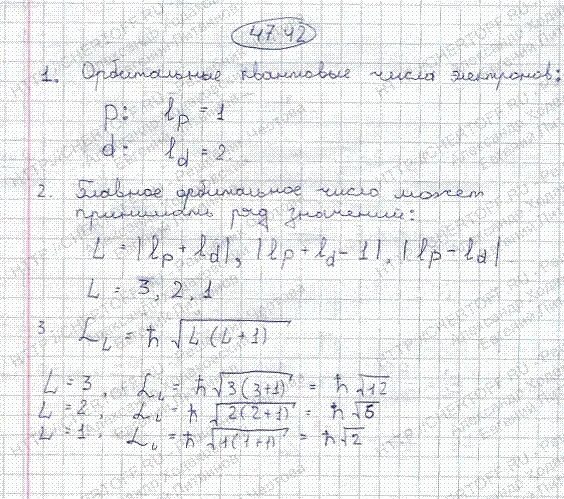 47.42
1. Орбитальные квантовые числа электронов:
p: l_p = 1
d: l_d = 2
2. Главное орбитальное число может
принимать ряд значений:
L = |l_p + l_d|, |l_p + l_d - 1|, |l_p - l_d|
L = 3, 2, 1
3. ℒ_L = ħ √(L(L+1))
L = 3, ℒ_L = ħ √(3(3+1)) = ħ √12
L = 2, ℒ_L = ħ √(2(2+1)) = ħ √6
L = 1, ℒ_L = ħ √(1(1+1)) = ħ √2